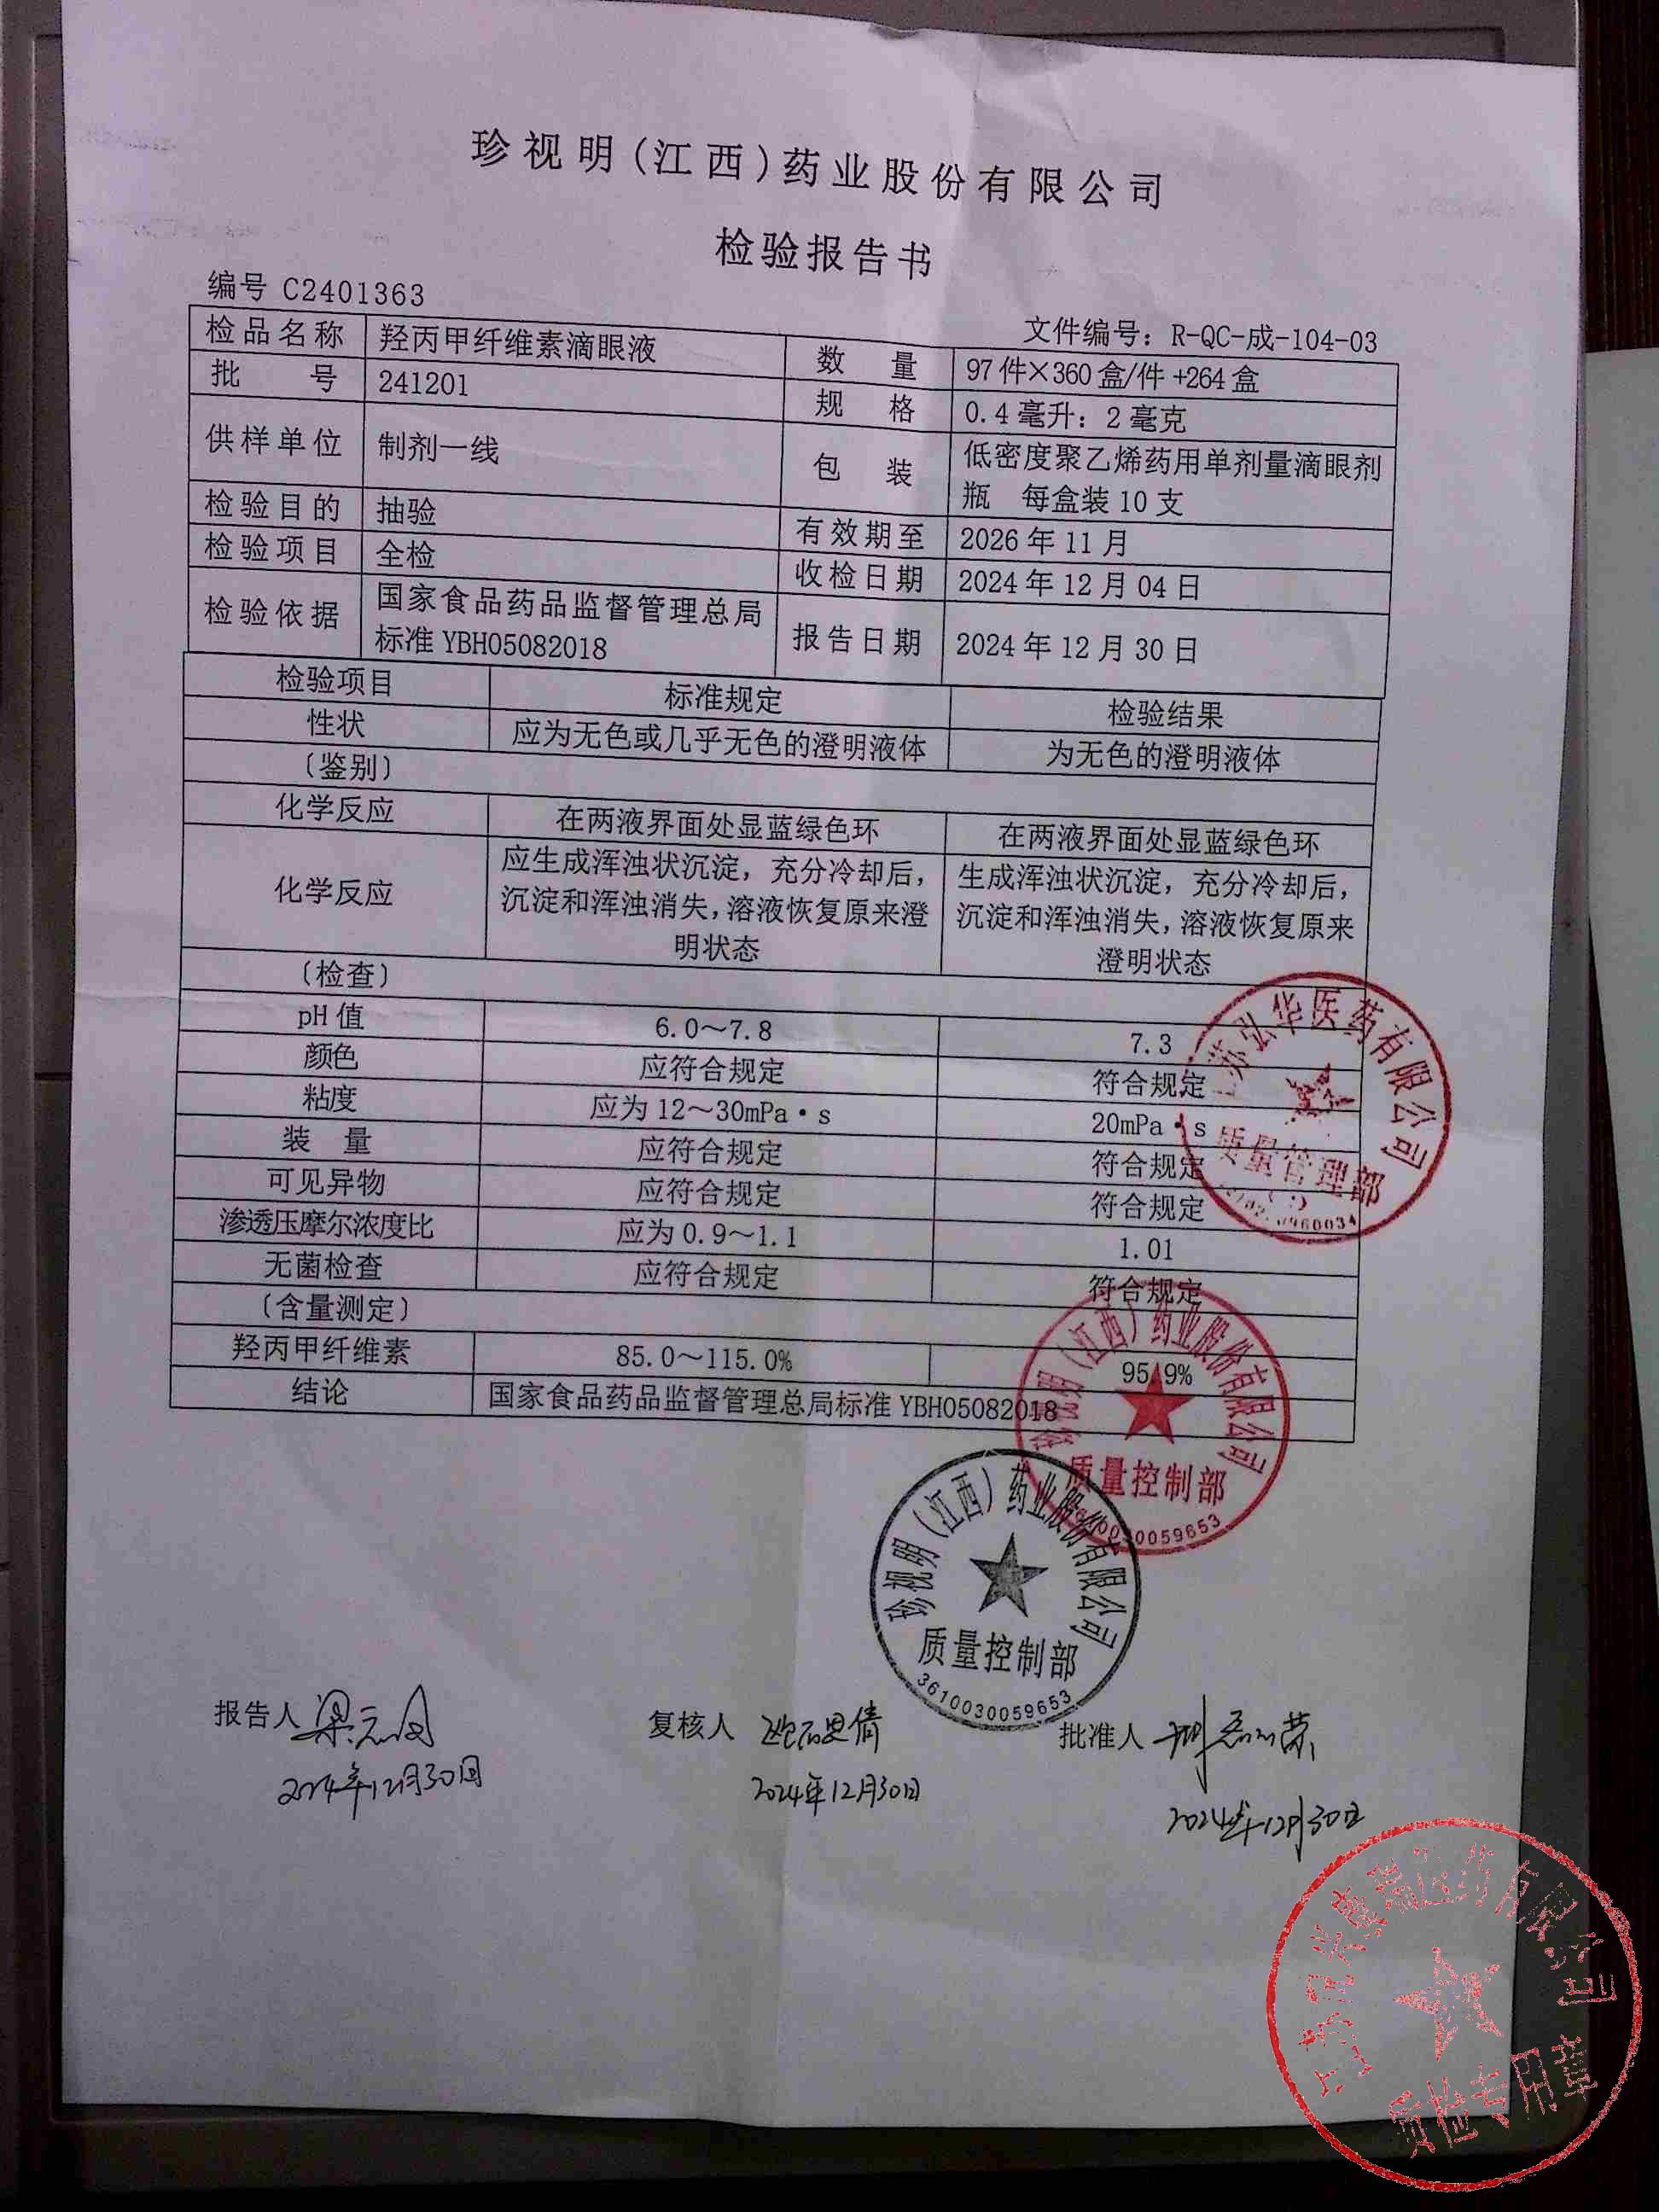 珍视明(江西)药业股份有限公司
检验报告书
编号 C2401363
文件编号：R-QC-成-104-03
检品名称 羟丙甲纤维素滴眼液 数 量 97件×360盒/件+264盒
批 号 241201 规 格 0.4毫升：2毫克
供样单位 制剂一线 包 装 低密度聚乙烯药用单剂量滴眼剂
瓶 每盒装10支
检验目的 抽验 有效期至 2026年11月
检验项目 全检 收检日期 2024年12月04日
检验依据 国家食品药品监督管理总局
标准YBH05082018 报告日期 2024年12月30日
检验项目 标准规定 检验结果
性状 应为无色或几乎无色的澄明液体 为无色的澄明液体
〔鉴别〕
化学反应 在两液界面处显蓝绿色环 在两液界面处显蓝绿色环
化学反应 应生成浑浊状沉淀，充分冷却后， 生成浑浊状沉淀，充分冷却后，
沉淀和浑浊消失，溶液恢复原来澄 沉淀和浑浊消失，溶液恢复原来
明状态 澄明状态
〔检查〕
pH值 6.0～7.8 7.3
颜色 应符合规定 符合规定
粘度 应为12～30mPa·s 20mPa·s
装 量 应符合规定 符合规定
可见异物 应符合规定 符合规定
渗透压摩尔浓度比 应为0.9～1.1 1.01
无菌检查 应符合规定 符合规定
〔含量测定〕
羟丙甲纤维素 85.0～115.0% 95.9%
结论 国家食品药品监督管理总局标准YBH05082018
苏弘华医药有限公司
质量管理部
珍视明（江西）药业股份有限公司
质量控制部
珍视明（江西）药业股份有限公司
质量控制部
3610030059653
报告人 复核人 批准人
2024年12月30日 2024年12月30日 2024年12月30日
医药有限公司
质检专用章